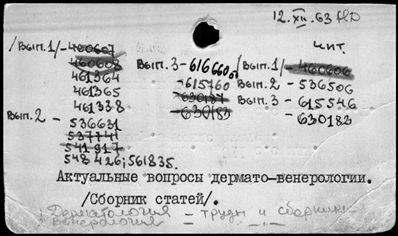 12.XII.63
/Вып.1/- 460607 Вып.3 - 616660 чит.
460608 - 615760 /Вып.1/ - 460606
461364 - 630187 Вып.2 - 536506
461365 - 630183 Вып.3 - 615546
461338 - 630182
Вып.2 - 536631
537741
541917
548426; 561835.
Актуальные вопросы дермато-венерологии.
/Сборник статей/.
Дерматология - труды и сборники
Венерология -